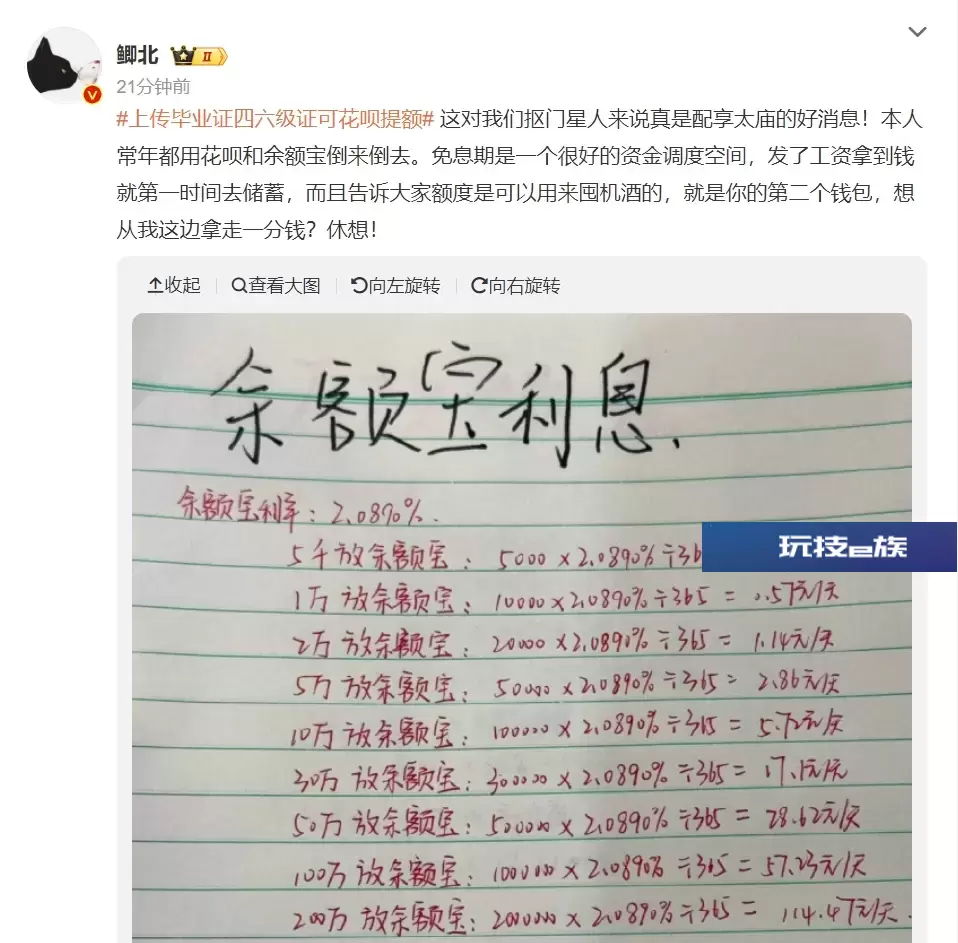 鲫北
II
V
21分钟前
#上传毕业证四六级证可花呗提额# 这对我们抠门星人来说真是配享太庙的好消息！本人
常年都用花呗和余额宝倒来倒去。免息期是一个很好的资金调度空间，发了工资拿到钱
就第一时间去储蓄，而且告诉大家额度是可以用来囤机酒的，就是你的第二个钱包，想
从我这边拿走一分钱？休想！
收起 查看大图 向左旋转 向右旋转
余额宝利息.
余额宝利率：2.0890%.
5千放余额宝：5000×2.0890%÷36
玩技e族
1万放余额宝：10000×2.0890%÷365 = 0.57元/天
2万放余额宝：20000×2.0890%÷365 = 1.14元/天
5万放余额宝：50000×2.0890%÷365 = 2.86元/天
10万放余额宝：100000×2.0890%÷365 = 5.72元/天
30万放余额宝：300000×2.0890%÷365 = 17.1元/天
50万放余额宝：500000×2.0890%÷365 = 28.62元/天
100万放余额宝：1000000×2.0890%÷365 = 57.23元/天
200万放余额宝：2000000×2.0890%÷365 = 114.47元/天.